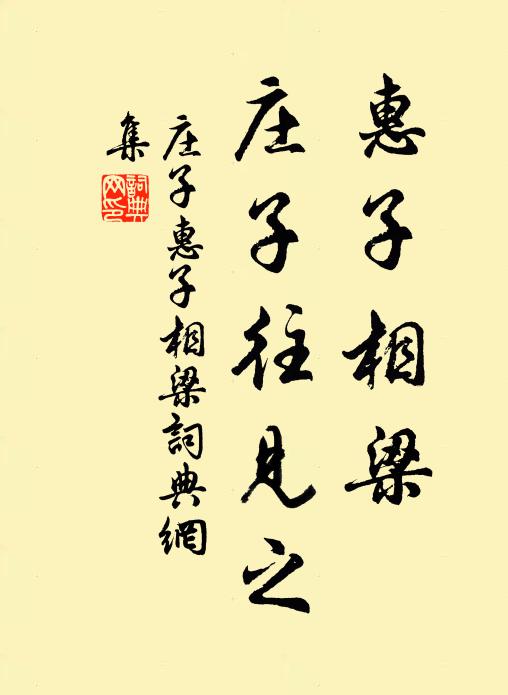 惠子相梁
庄子往见之
庄子惠子相梁詞典網
集
詞典
网印